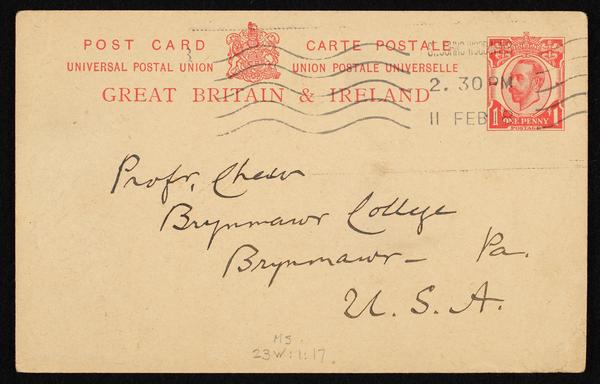 POST CARD CARTE POSTALE
UNIVERSAL POSTAL UNION UNION POSTALE UNIVERSELLE
GREAT BRITAIN & IRELAND
2. 30 PM
11 FEB
1 ONE PENNY 1
POSTAGE
Profr. Chew
Brynmawr College
Brynmawr - Pa.
U. S. A.
MS.
23W:1:17.